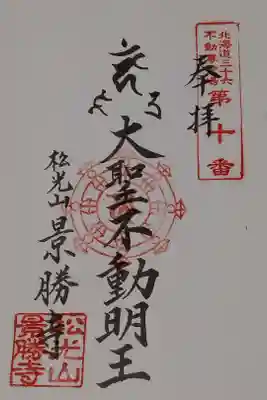 北海道三十六
不動尊霊場
第十番
奉拝
大聖不動明王
松光山
景勝寺
松光山
景勝寺